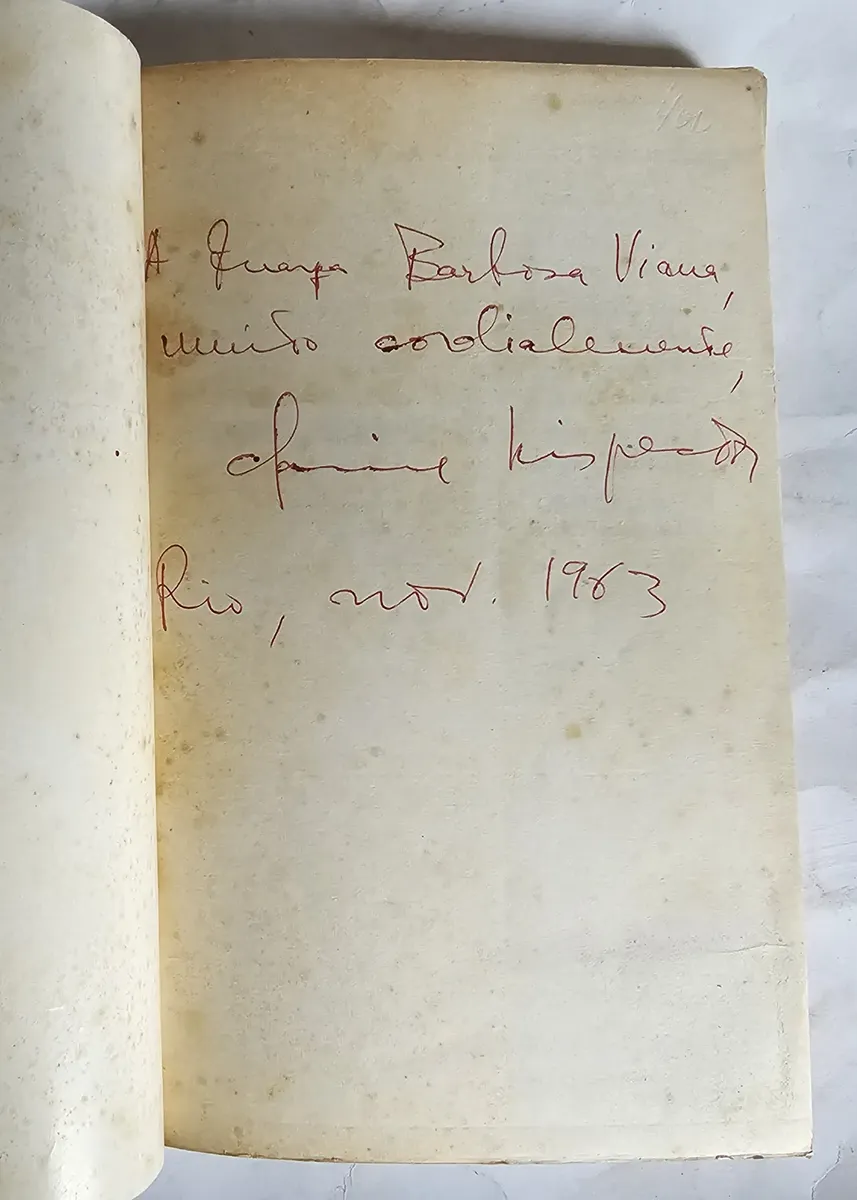 A Barbosa Viana,
muito cordialmente,
Clarice Lispector
Rio, nov. 1963